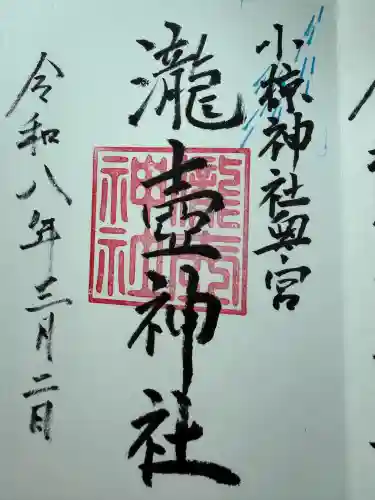 小椋神社奥宮
瀧壺神社
令和八年三月二日